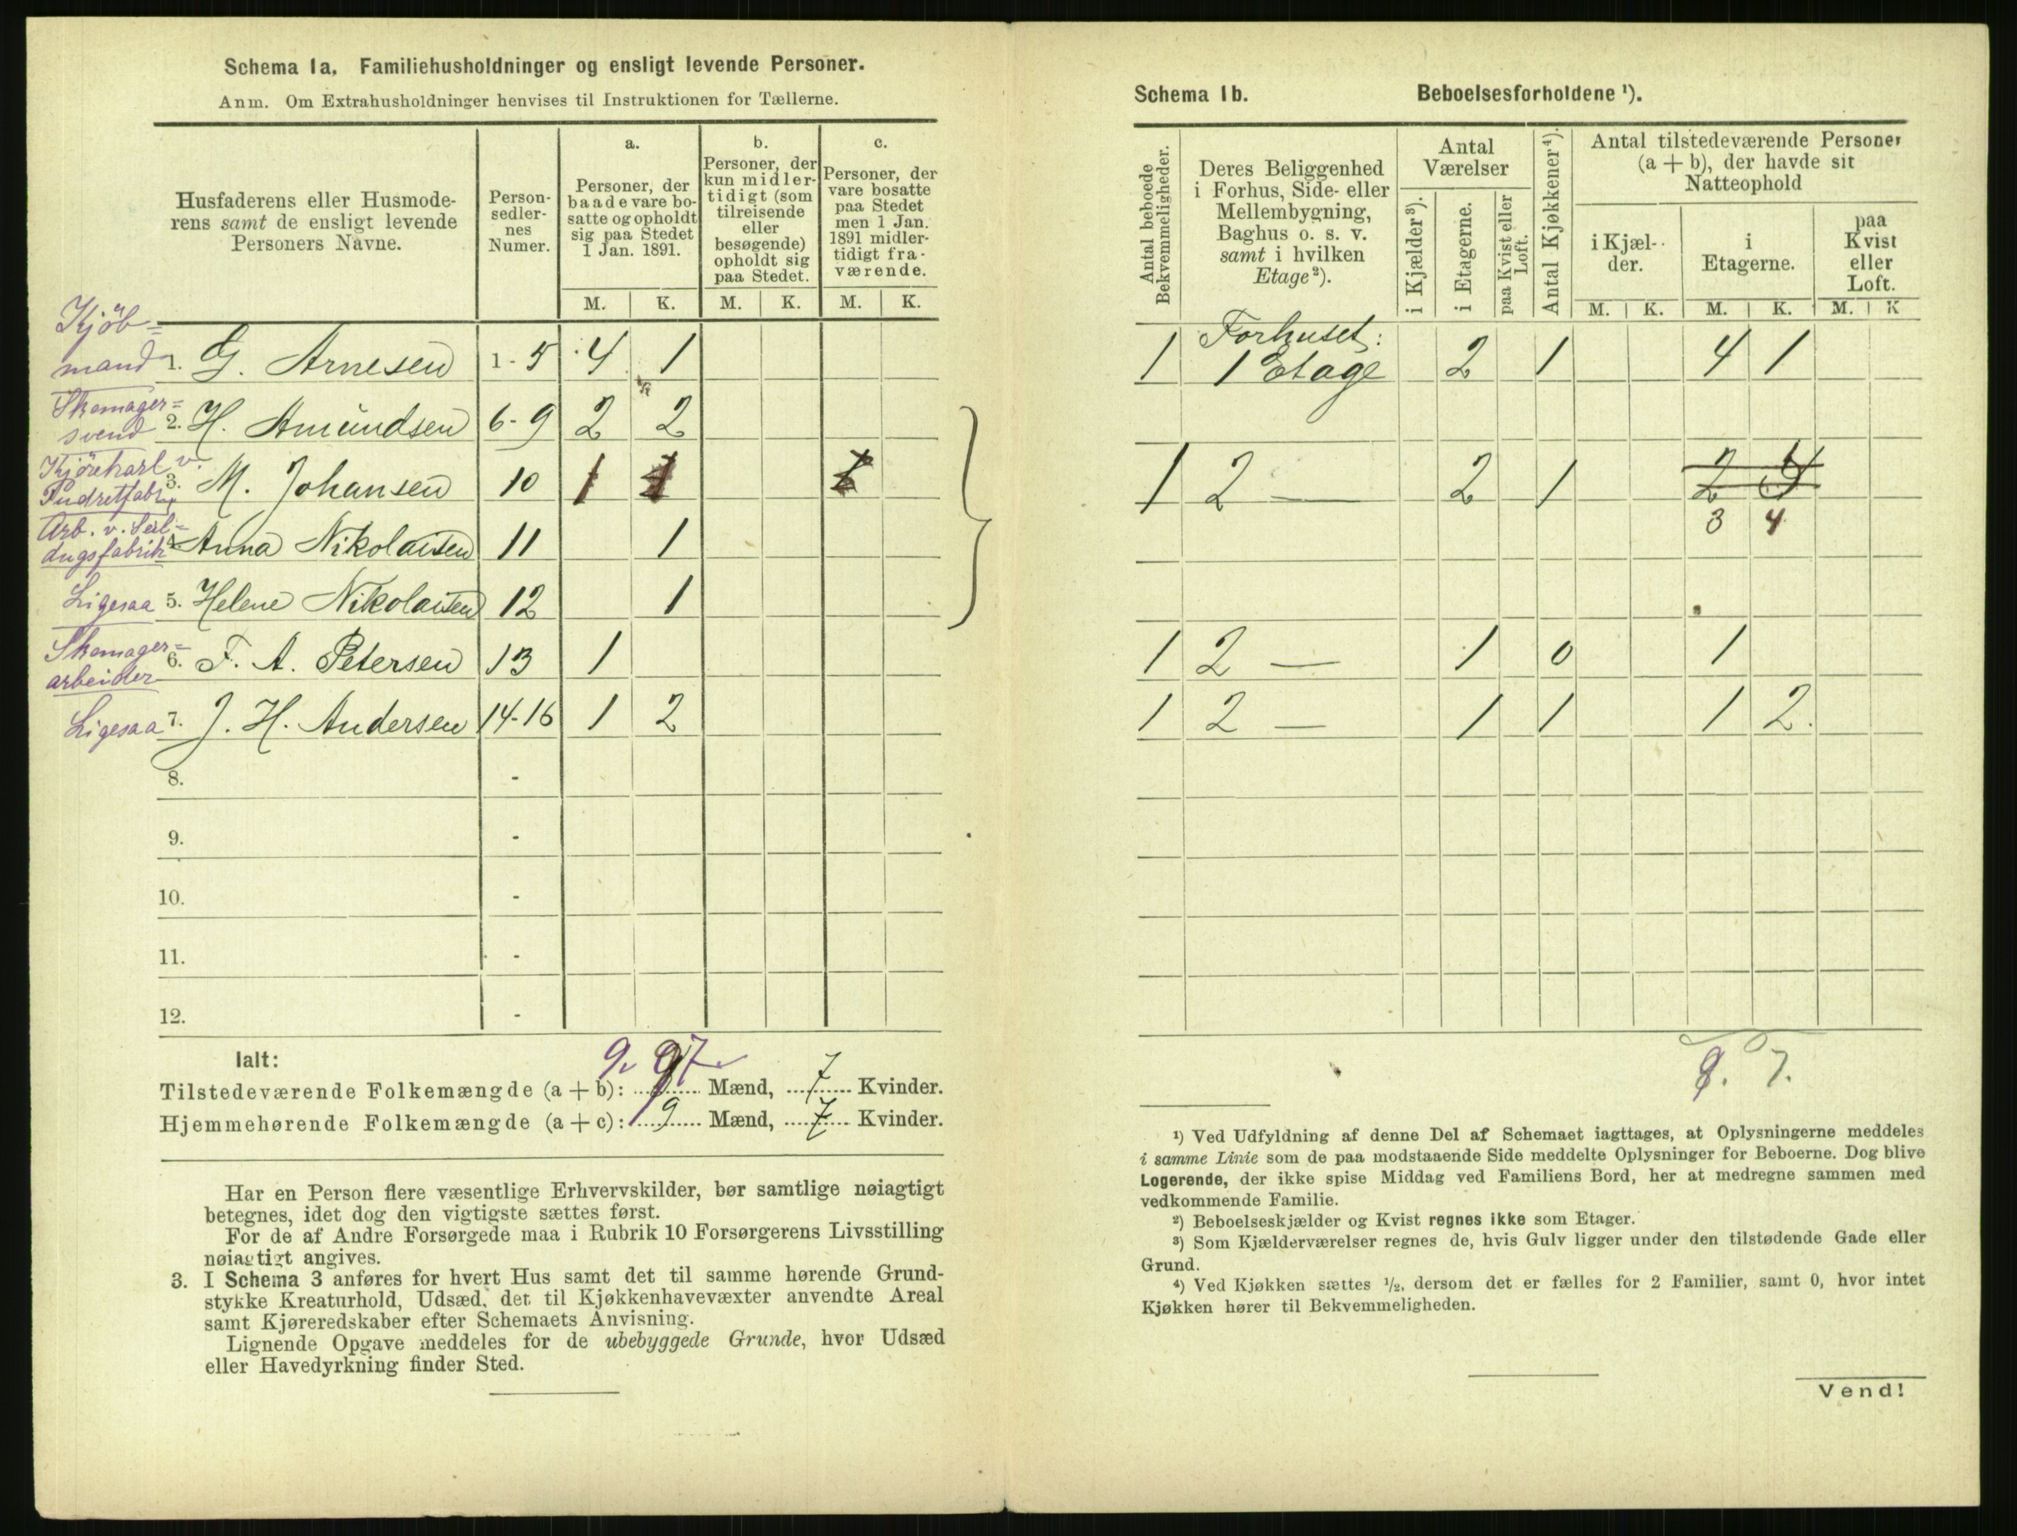 Schema 1a. Familiehusholdninger og ensligt levende Personer.
Anm. Om Extrahusholdninger henvises til Instruktionen for Tællerne.
Husfaderens eller Husmode-
rens samt de ensligt levende
Personers Navne.
Person-
sedler-
nes
Numer.
a.
Personer, der
baade vare bo-
satte og opholdt
sig paa Stedet
1 Jan. 1891.
b.
Personer, der
kun midler-
tidigt (som
tilreisende
eller
besøgende)
opholdt sig
paa Stedet.
c.
Personer, der
vare bosatte
paa Stedet
men 1 Jan.
1891 midler-
tidigt fra-
værende.
M. K. M. K. M. K.
Kjöb=
mand 1. G. Arnesen 1-5 4 1
Skomager=
svend 2. H. Amundsen 6-9 2 2
Kjörekarl v.
Pudretfabr. 3. M. Johansen 10 1
Arb. v. Seil=
dugsfabrik 4. Anna Nikolaisen 11 1
Ligesaa 5. Helene Nikolaisen 12 1
Skomager=
arbeider 6. F. A. Petersen 13 1
Ligesaa 7. J. H. Andersen 14-16 1 2
8. -
9. -
10. -
11. -
12. -
Ialt:
9. 7
Tilstedeværende Folkemængde (a+b): 9 Mænd, 7 Kvinder.
Hjemmehørende Folkemængde (a+c): 9 Mænd, 7 Kvinder.
Har en Person flere væsentlige Erhvervskilder, bør samtlige nøiagtigt
betegnes, idet dog den vigtigste sættes først.
For de af Andre Forsørgede maa i Rubrik 10 Forsørgerens Livsstilling
nøiagtigt angives.
3. I Schema 3 anføres for hvert Hus samt det til samme hørende Grund-
stykke Kreaturhold, Udsæd, det til Kjøkkenhavevæxter anvendte Areal
samt Kjøreredskaber efter Schemaets Anvisning.
Lignende Opgave meddeles for de ubebyggede Grunde, hvor Udsæd
eller Havedyrkning finder Sted.
Schema 1b. Beboelsesforholdene ¹).
Antal beboede
Bekvemmeligheder.
Deres Beliggenhed
i Forhus, Side- eller
Mellembygning,
Baghus o. s. v.
samt i hvilken
Etage²).
Antal
Værelser
i Kjælder³).
i Etagerne.
paa Kvist eller
Loft.
Antal Kjøkkener⁴).
Antal tilstedeværende Personer
(a+b), der havde sit
Natteophold
i Kjæl-
der.
i
Etagerne.
paa
Kvist
eller
Loft.
M. K. M. K. M. K
Forhuset:
1 1 Etage 2 1 4 1
1 2 — 2 1 2 4
3 4
1 2 — 1 0 1
1 2 — 1 1 1 2.
9. 7.
¹) Ved Udfyldning af denne Del af Schemaet iagttages, at Oplysningerne meddeles
i samme Linie som de paa modstaaende Side meddelte Oplysninger for Beboerne. Dog blive
Logerende, der ikke spise Middag ved Familiens Bord, her at medregne sammen med
vedkommende Familie.
²) Beboelseskjælder og Kvist regnes ikke som Etager.
³) Som Kjælderværelser regnes de, hvis Gulv ligger under den tilstødende Gade eller
Grund.
⁴) Ved Kjøkken sættes ½, dersom det er fælles for 2 Familier, samt 0, hvor intet
Kjøkken hører til Bekvemmeligheden.
Vend!